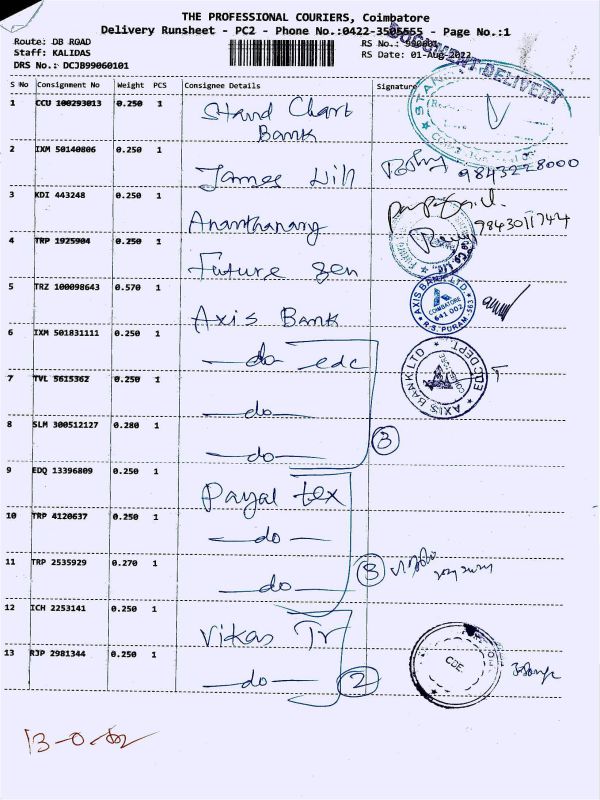 THE PROFESSIONAL COURIERS, Coimbatore
Delivery Runsheet - PC2 - Phone No.:0422-3505555 - Page No.:1
Route: DB ROAD
Staff: KALIDAS
DRS No.: DCJB99060101
RS Date: 01-Aug-2022
DOCUMENT DELIVERY
S No Consignment No Weight PCS Consignee Details Signature
1 CCU 100293013 0.250 1 Stand Chart Bank
2 IXM 50140806 0.250 1 James Will 9843228000
3 KDI 443248 0.250 1 Ananthanarg
4 TRP 1925904 0.250 1 Future Gen
5 TRZ 100098643 0.570 1 Axis Bank
AXIS BANK LTD
COIMBATORE
641 002
R.S. PURAM-563
6 IXM 501831111 0.250 1 —do— edc
AXIS BANK LTD EDC DEPT.
7 TVL 5615362 0.250 1 —do—
8 SLM 300512127 0.280 1 —do— 3
9 EDQ 13396809 0.250 1 Payal tex
10 TRP 4120637 0.250 1 —do—
11 TRP 2535929 0.270 1 —do— 3
12 ICH 2253141 0.250 1 Vikas Tr
13 RJP 2981344 0.250 1 —do— 2
CDE.